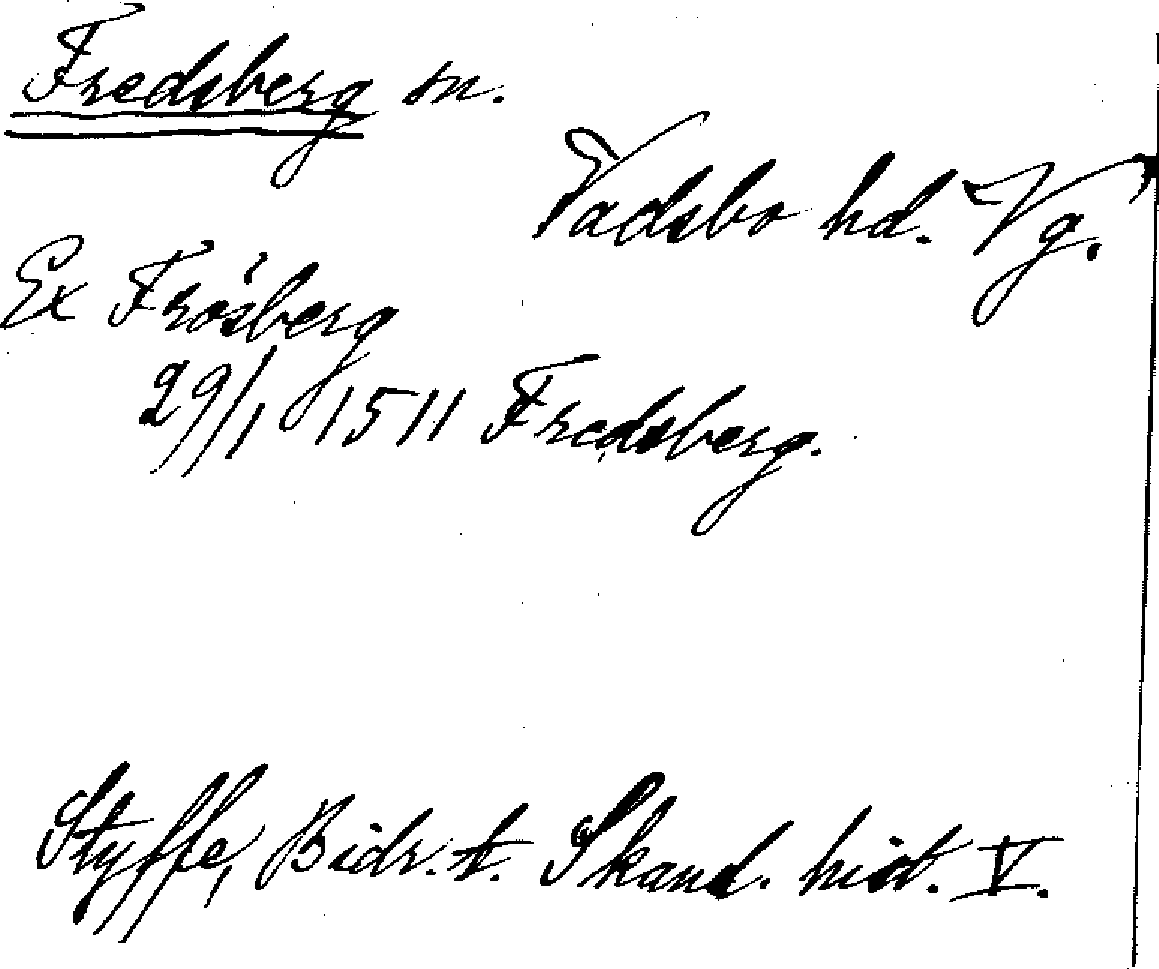 Fredsberg sn.
Vadsbo hd. Vg.
Ex Frösberg
29/1 1511 Fredsberg.
Styffe, Bidr. t. Skand. hist. V.